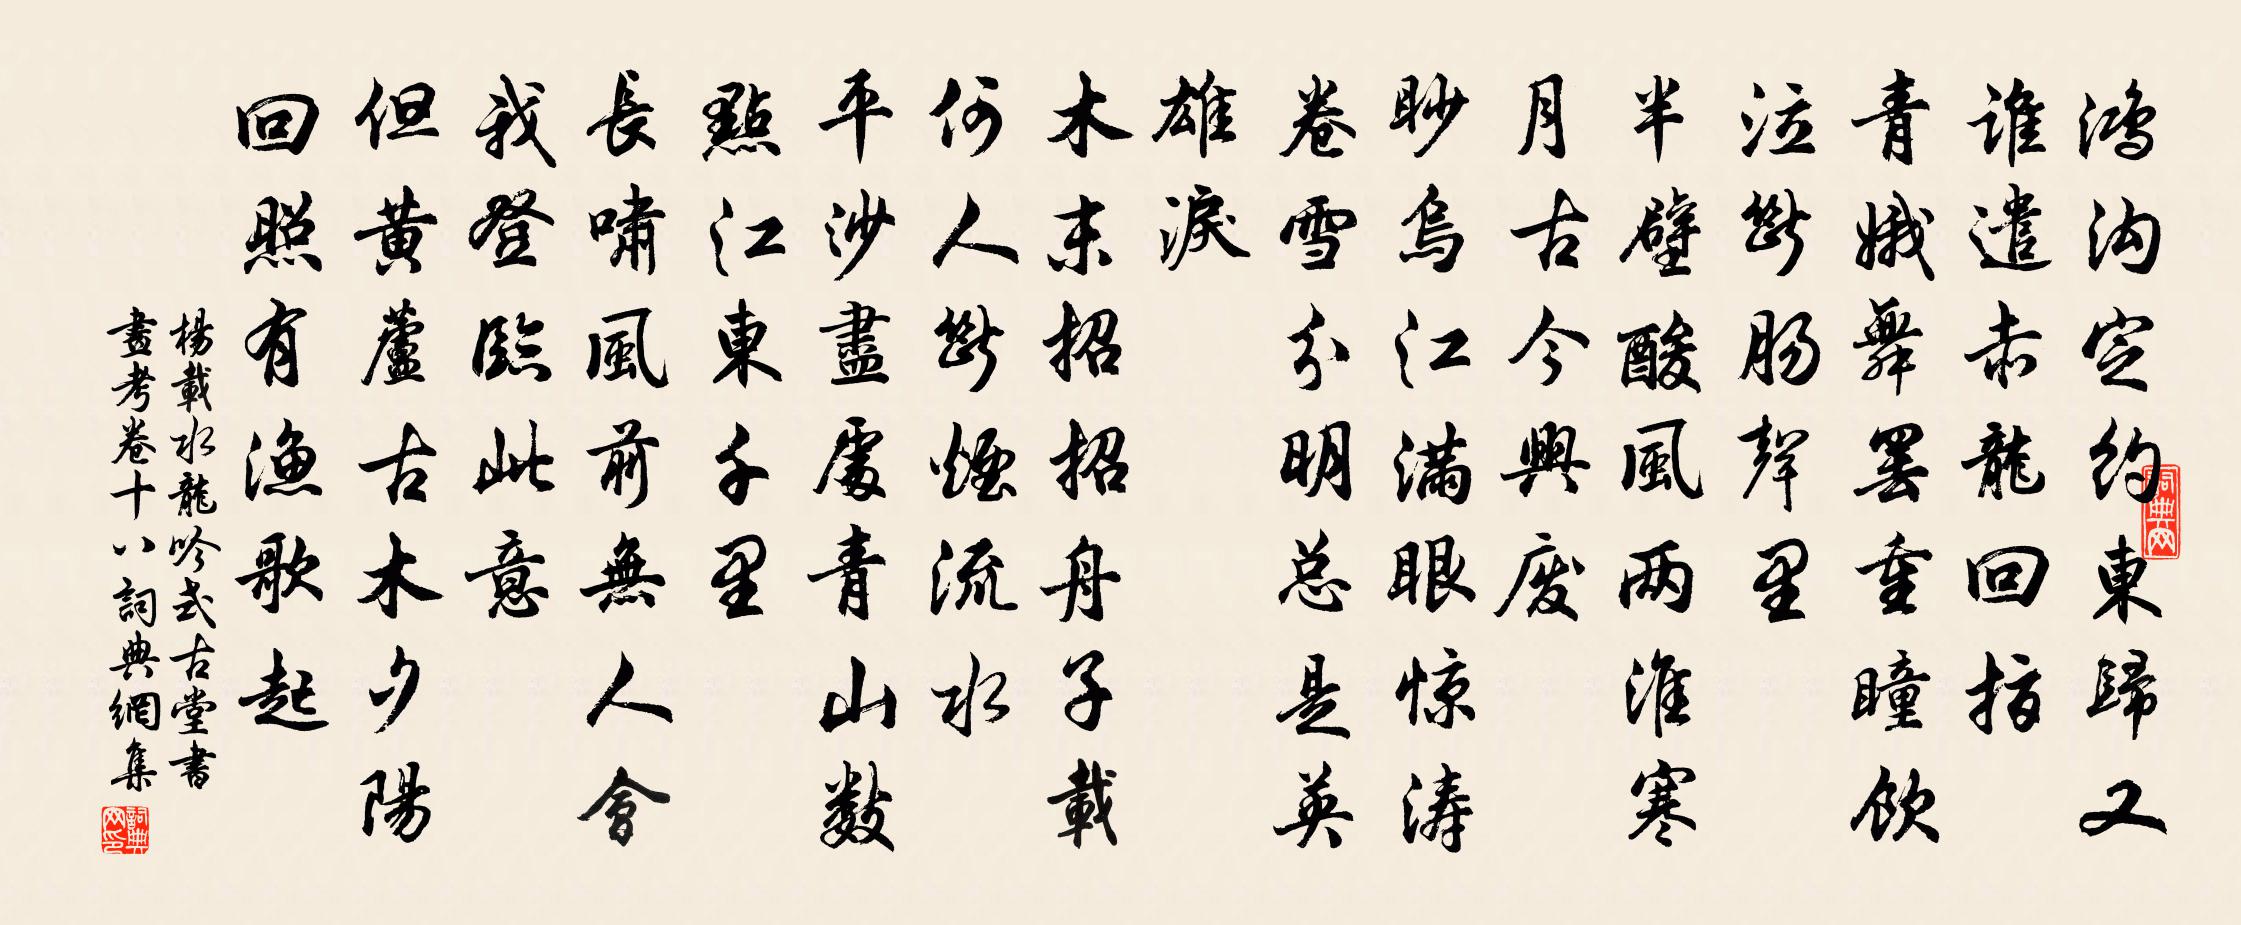 鴻沟定約東歸又
誰遣赤龍回指
青娥舞罢重瞳飲
泣斷肠聲里
半壁酸風两淮寒
月古今興废
眇烏江满眼惊涛
卷雪分明总是英
雄淚
木末招招舟子載
何人斷煙流水
平沙盡處青山數
點江東千里
長嘯風前無人會
我登臨此意
但黄蘆古木夕陽
回照有漁歌起
楊載水龍吟式古堂書
畫考卷十八詞典網集
詞典网
詞典网印